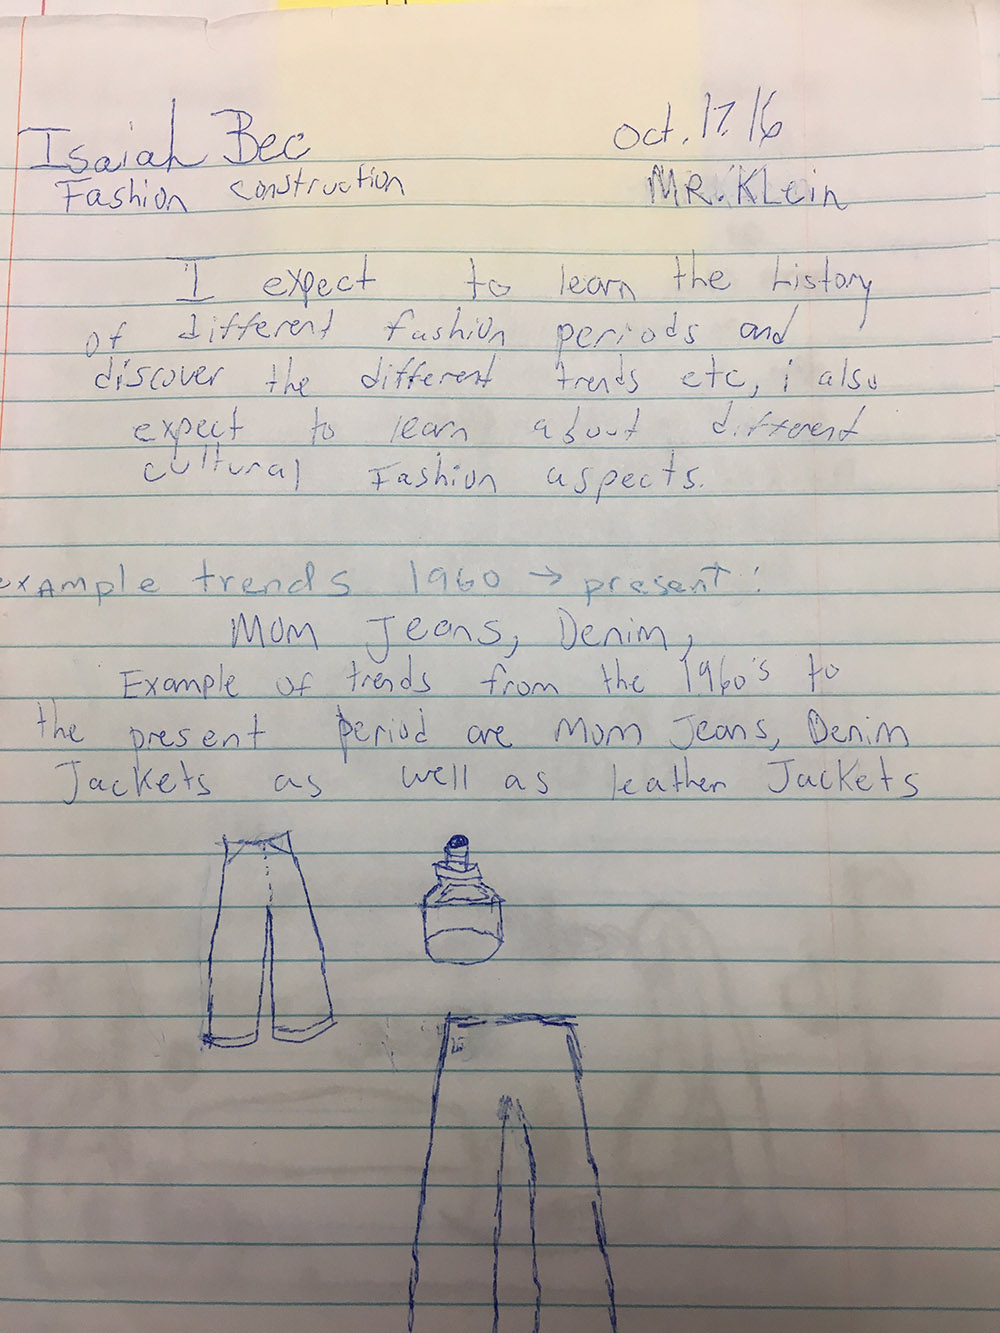 Isaiah Bec
oct. 17. 16
Fashion construction
MR. KLein
I expect to learn the history
of different fashion periods and
discover the different trends etc, i also
expect to learn about different
cultural Fashion aspects.
exAmple trends 1960 → present:
Mom Jeans, Denim,
Example of trends from the 1960's to
the present period are Mom Jeans, Denim
Jackets as well as leather Jackets